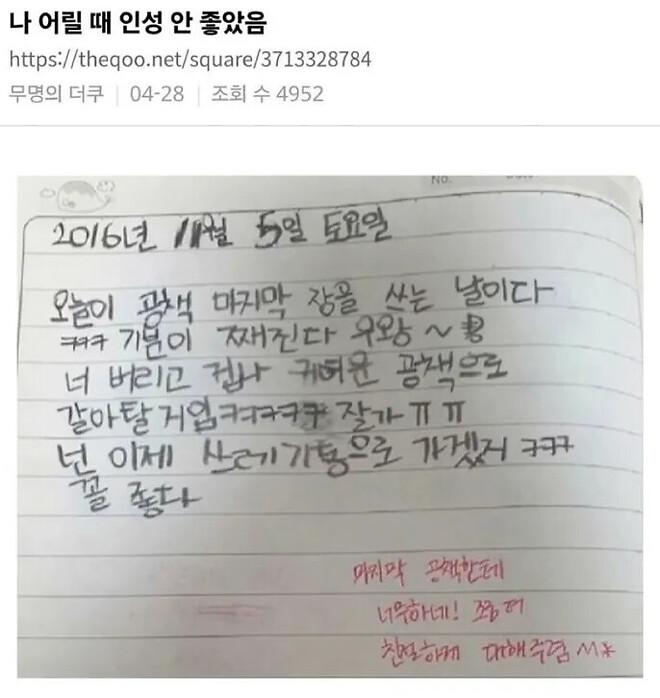 나 어릴 때 인성 안 좋았음
https://theqoo.net/square/3713328784
무명의 더쿠 | 04-28 | 조회 수 4952
No.
2016년 11월 5일 토요일
오늘이 공책 마지막 장을 쓰는 날이다
ㅋㅋㅋ 기분이 째진다 우왕~
너 버리고 겁나 귀여운 공책으로
갈아탈거임ㅋㅋㅋㅋㅋ 잘가ㅠㅠ
넌 이제 쓰레기통으로 가겠지 ㅋㅋㅋ
꼴 좋다
마지막 공책한테
너무하네! 조금 더
친절하게 대해주렴 ^^*